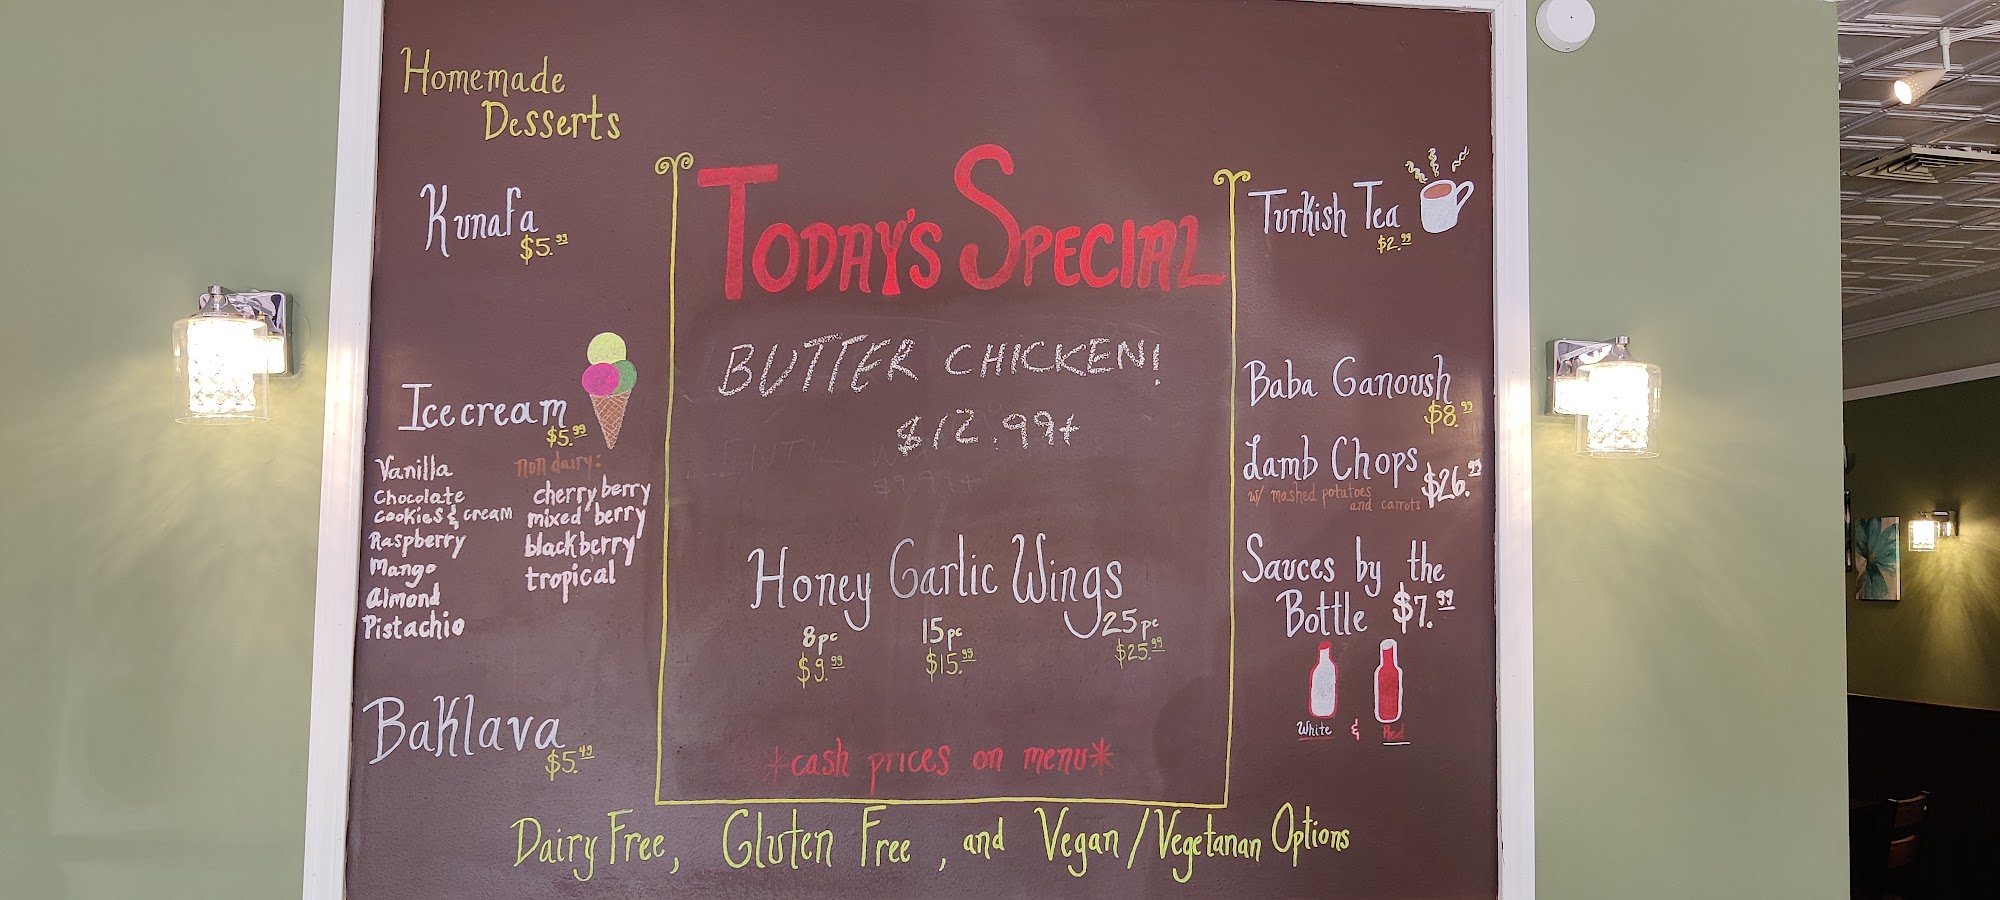 Homemade
Desserts
Kunafa
$5.99
Ice cream
$5.99
Vanilla
Chocolate
Cookies & cream
Raspberry
Mango
Almond
Pistachio
non dairy:
cherry berry
mixed berry
blackberry
tropical
Baklava
$5.49
TODAY'S SPECIAL
BUTTER CHICKEN!
$12.99+
$9.99+
Honey Garlic Wings
8pc 15pc 25pc
$9.99 $15.99 $25.99
*cash prices on menu*
Turkish Tea
$2.99
Baba Ganoush
$8.99
Lamb Chops
$26.99
w/ mashed potatoes
and carrots
Sauces by the
Bottle $7.99
White & Red
Dairy Free, Gluten Free, and Vegan/Vegetarian Options